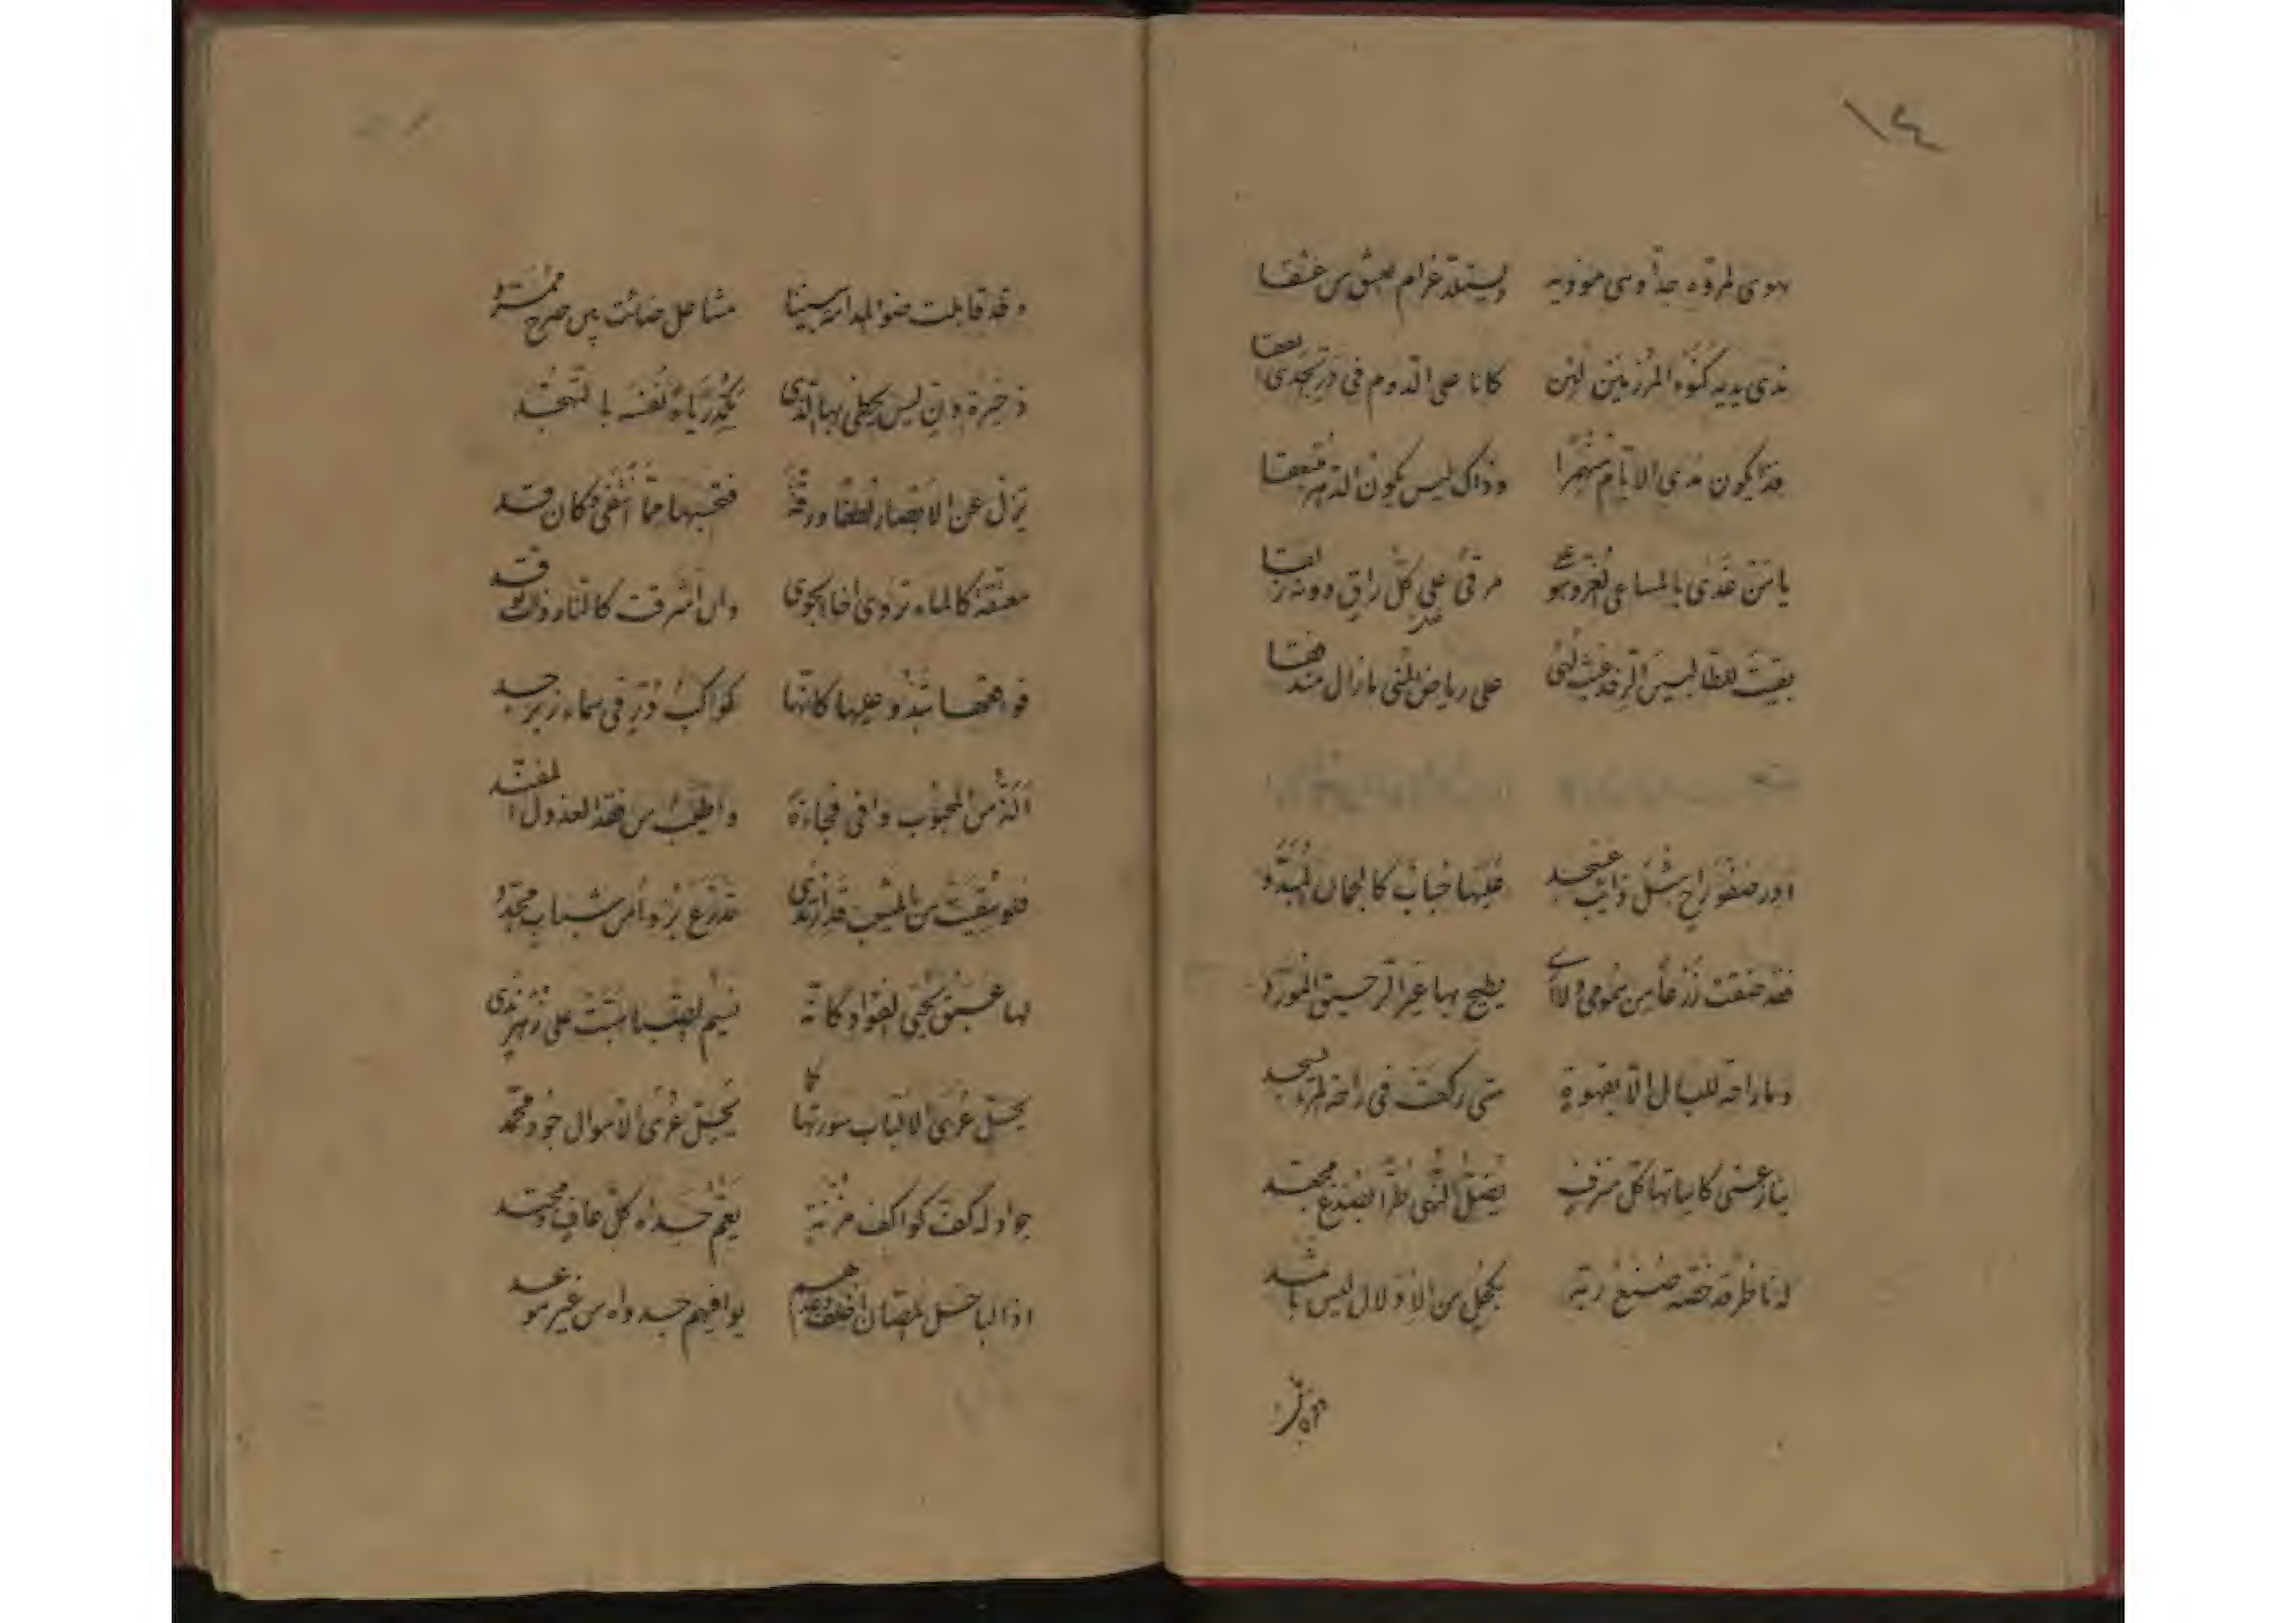 يهوى المروّه جدّا وهي مودية ويستلذّ غرام العشق من عشقا
ندى يديه كنوء المرزمين لئن كانا على الدوم في
فذا يكون مدى الايّام منهمرا وذاك ليس يكون الدهر منبعقا
يا من غدى بالمساعي الغرّ وهو على مرقىً علي كلّ راقٍ دونه زلقا
بقيت للطالبين الرفد غيث لهى على رياض المنى ما زال مندفقا
ادر صفو راحٍ مثل ذائب عسجد عليها حباب كالجمان المبدّد
فقد ضقت ذرعاً من همومي ولا أرى يطيح بها غير الرحيق المورّد
وما راحة للبال الّا بقهوةٍ متى ركعت في راحة المرء يسجد
ينازعني كاساتها كلّ مترفٍ يضلّ النهى طرّا بصدغ مجعّد
له ناظر قد خصّه صنع ربّه بكحلٍ من الادلال ليس باثمد
وقد
وقد قابلت ضوء المدامة بيننا مشاعل ضائت بين صرح ممرّد
ذخيرة دنٍّ ليس يحظى بها الذي يكدّر رياء نفسه بالتهجّد
تزلّ عن الابصار لطفا ورقّة فتحسبها ممّا شفّ كان قد
معتقة كالماء تروي اخا الجوى وان اشرقت كالنار ذات توقد
فواقعها تبدو عليها كانّها كواكب درّ في سماء زبرجد
الذّ من المحبوب وافى فجاءة واطيب من فقد العذول المفنّد
فلو سقيت من بالمشيب قد ارتدى تدرّع بردا من شباب مجدّد
لها عبق يحيي الفؤاد كانّه نسيم الصبا هبّت على زهر ندي
يحلّ عرى الالباب سورتها كما يحلّ عرى الاموال جود محمّد
جواد له كفّ كواكف مزنة يعمّ جداه كلّ عافٍ ومجتد
اذا الباخل المنّان اخلف وعدهم يوافيهم جدواه من غير موعد